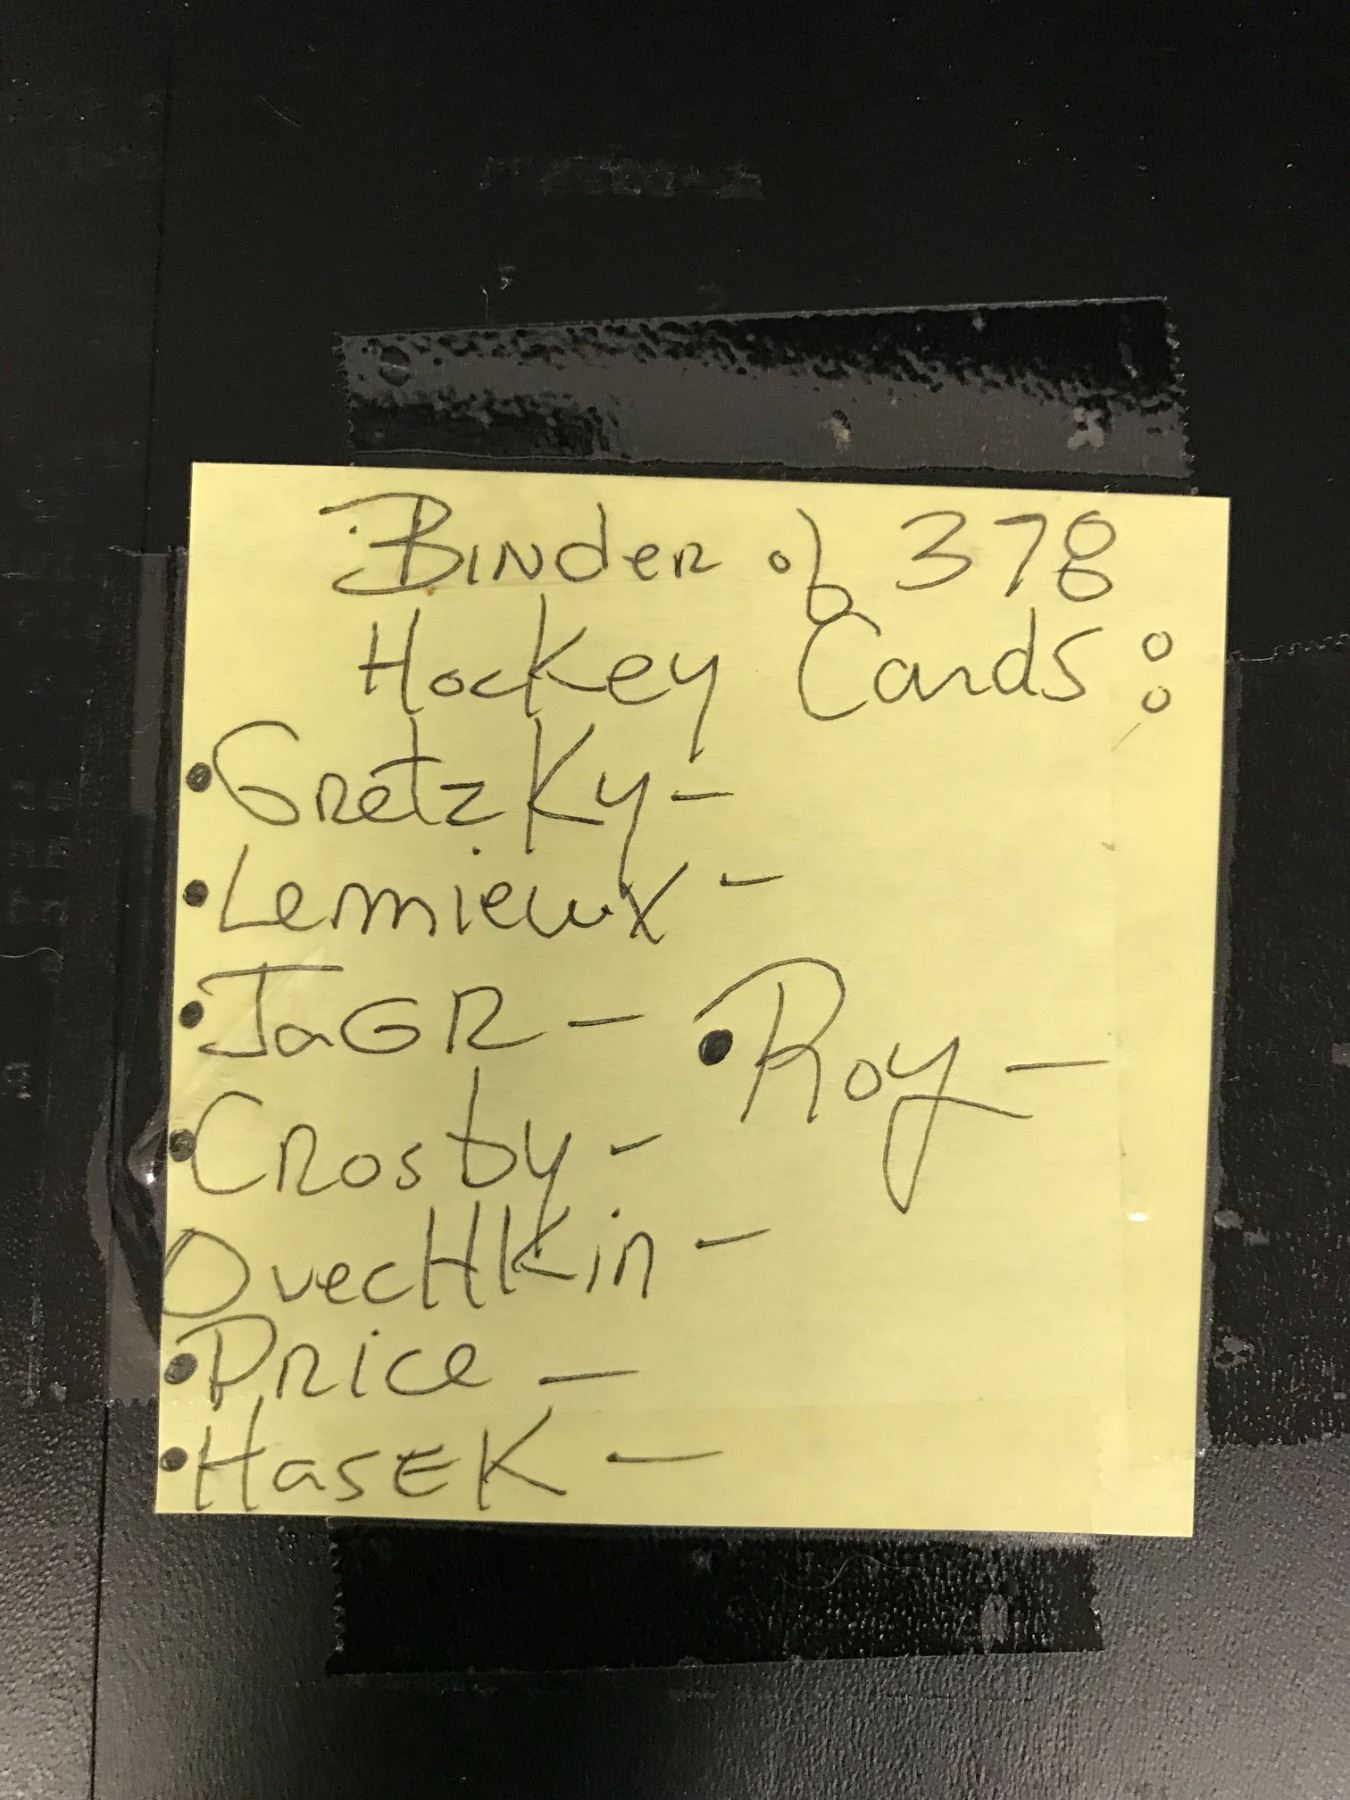 Binder of 378
Hockey Cards:
• Gretzky -
• Lemieux -
• JaGR -
• Roy -
• Crosby -
OvecHKin -
• Price -
• HasEK -